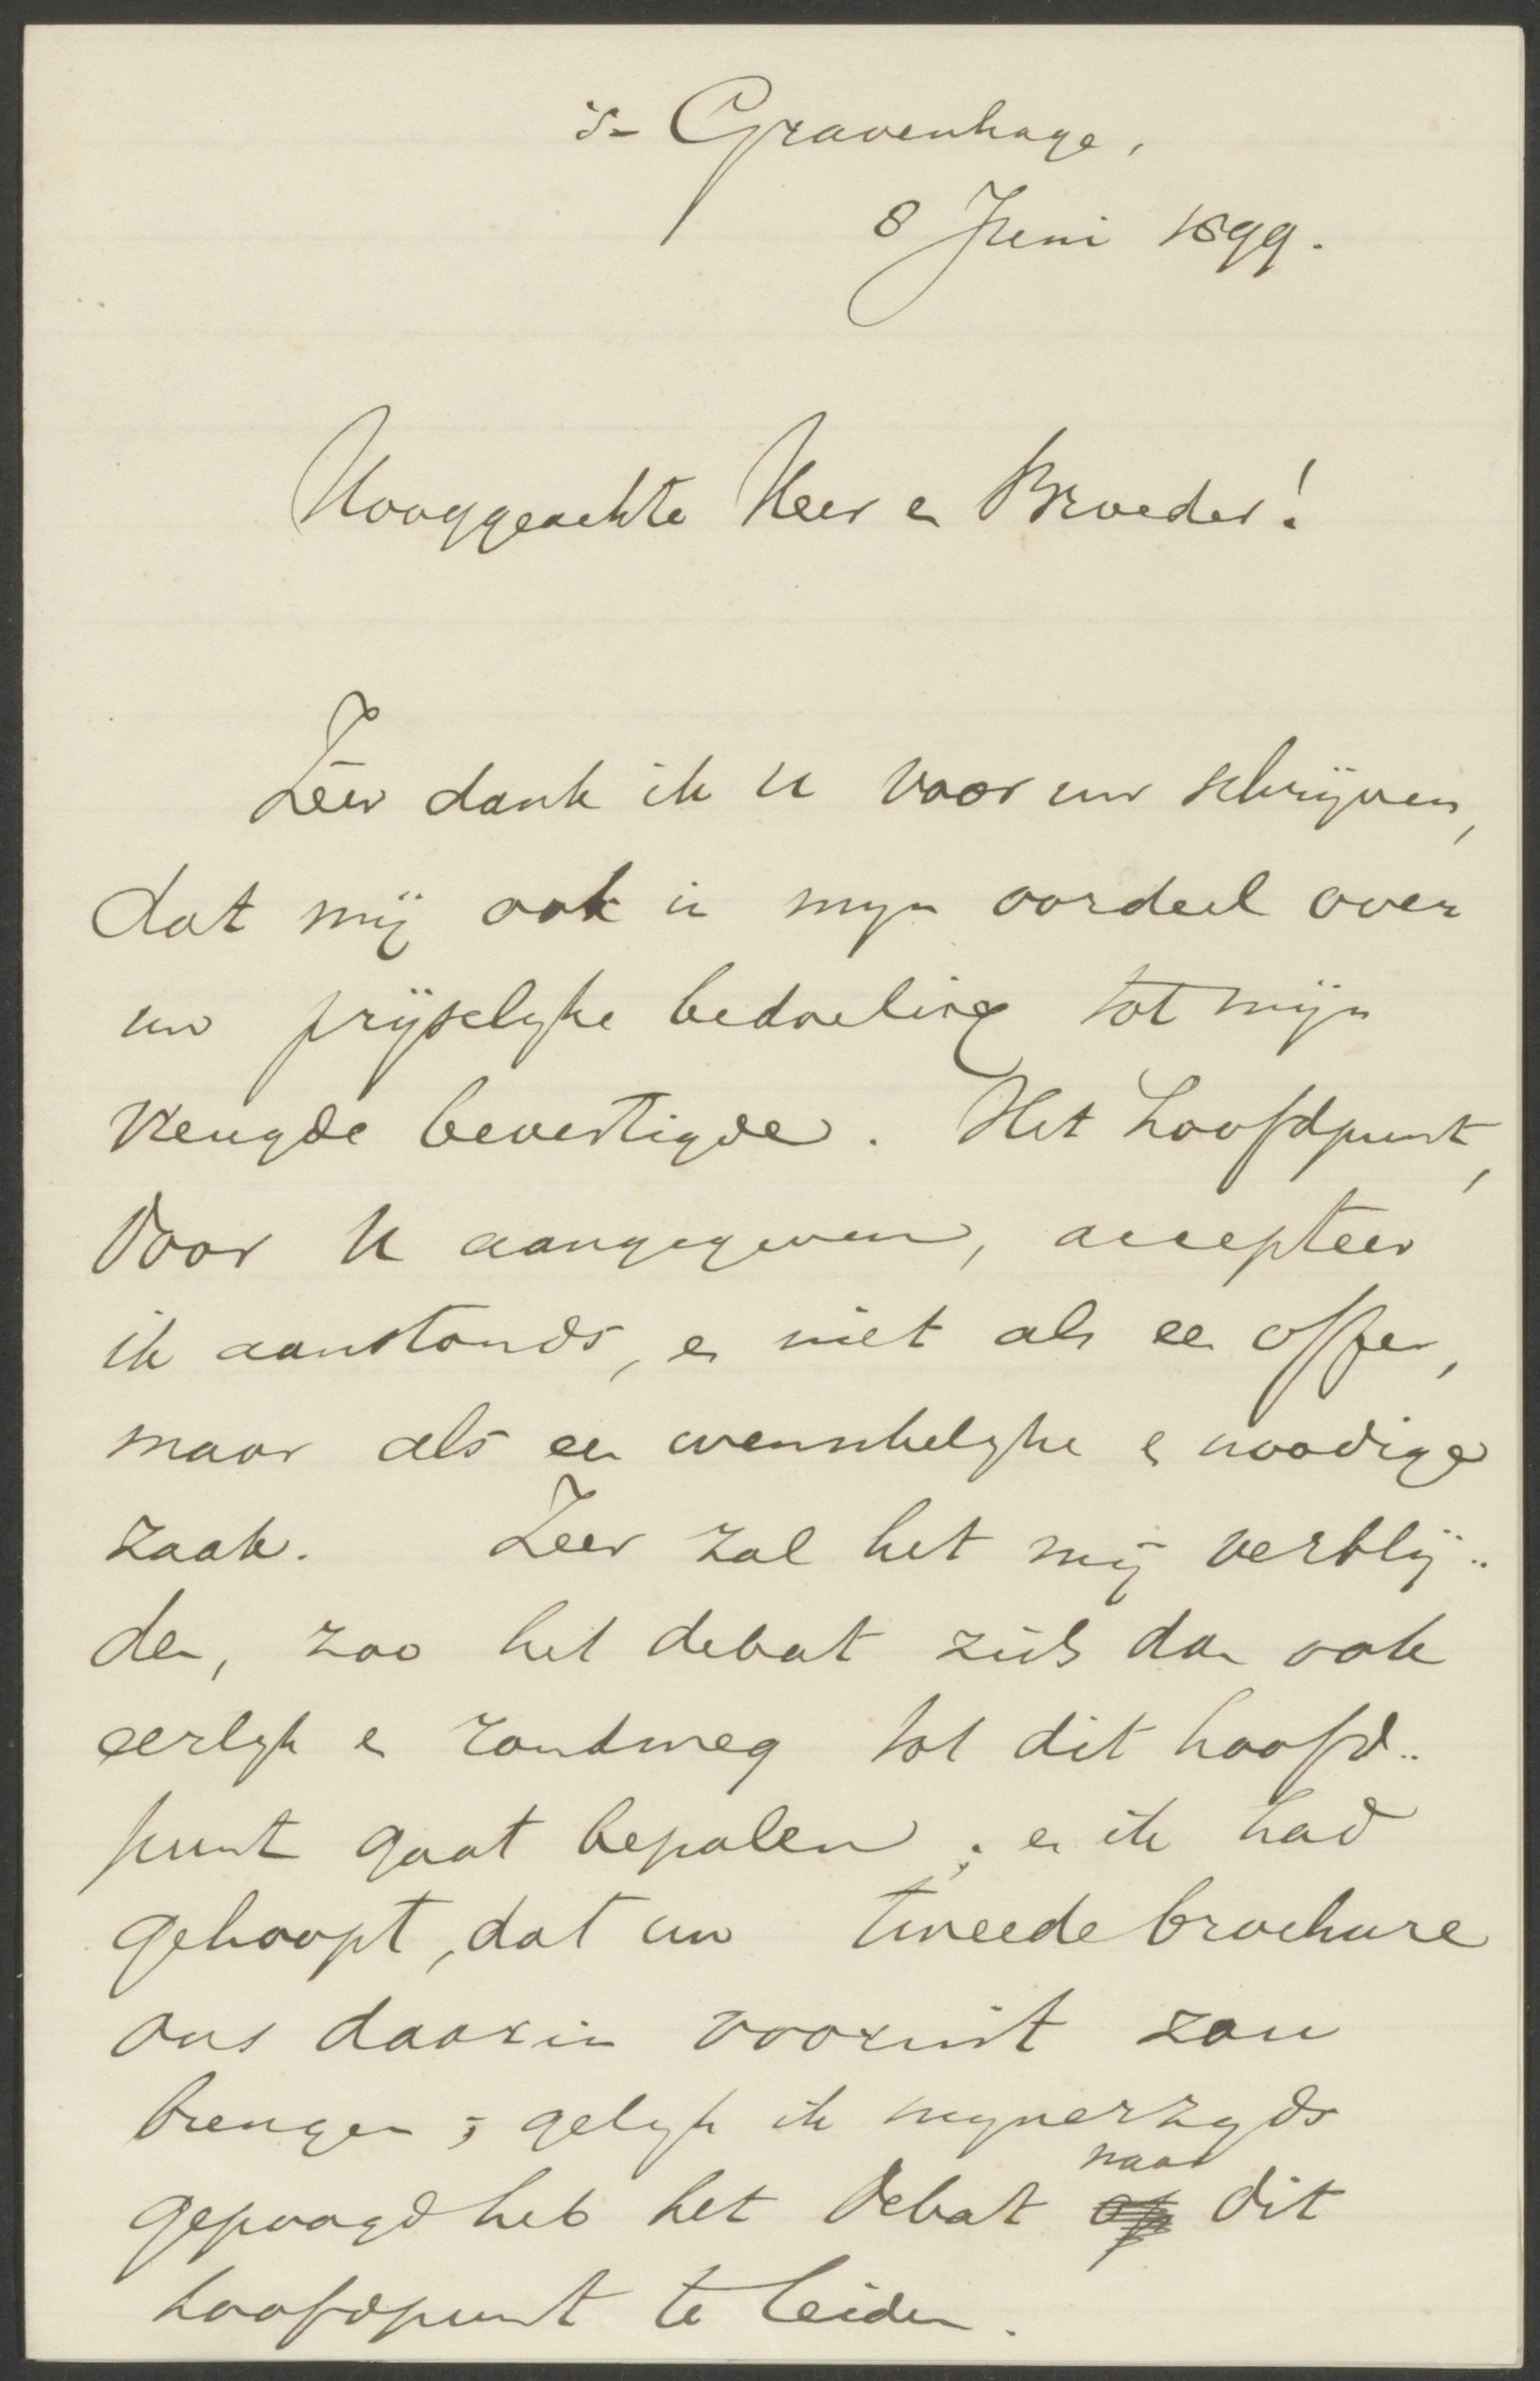 's-Gravenhage,
8 Juni 1899.
Hooggeachte Heer en Broeder!
Zeer dank ik U voor uw schrijven,
dat mij ook in mijn oordeel over
uw prijselijke bedoeling tot mijn
vreugde bevestigde. Het hoofdpunt,
door U aangegeven, accepteer
ik aanstonds, en niet als een offer,
maar als een wenschelijke en noodige
zaak. Zeer zal het mij verblij-
den, zoo het debat zich dan ook
eerlijk en rondweg tot dit hoofd-
punt gaat bepalen; en ik had
gehoopt, dat uw tweede brochure
ons daarin vooruit zou
brengen; gelijk ik mijnerzijds
gepoogd heb het debat op naar dit
hoofdpunt te leiden.